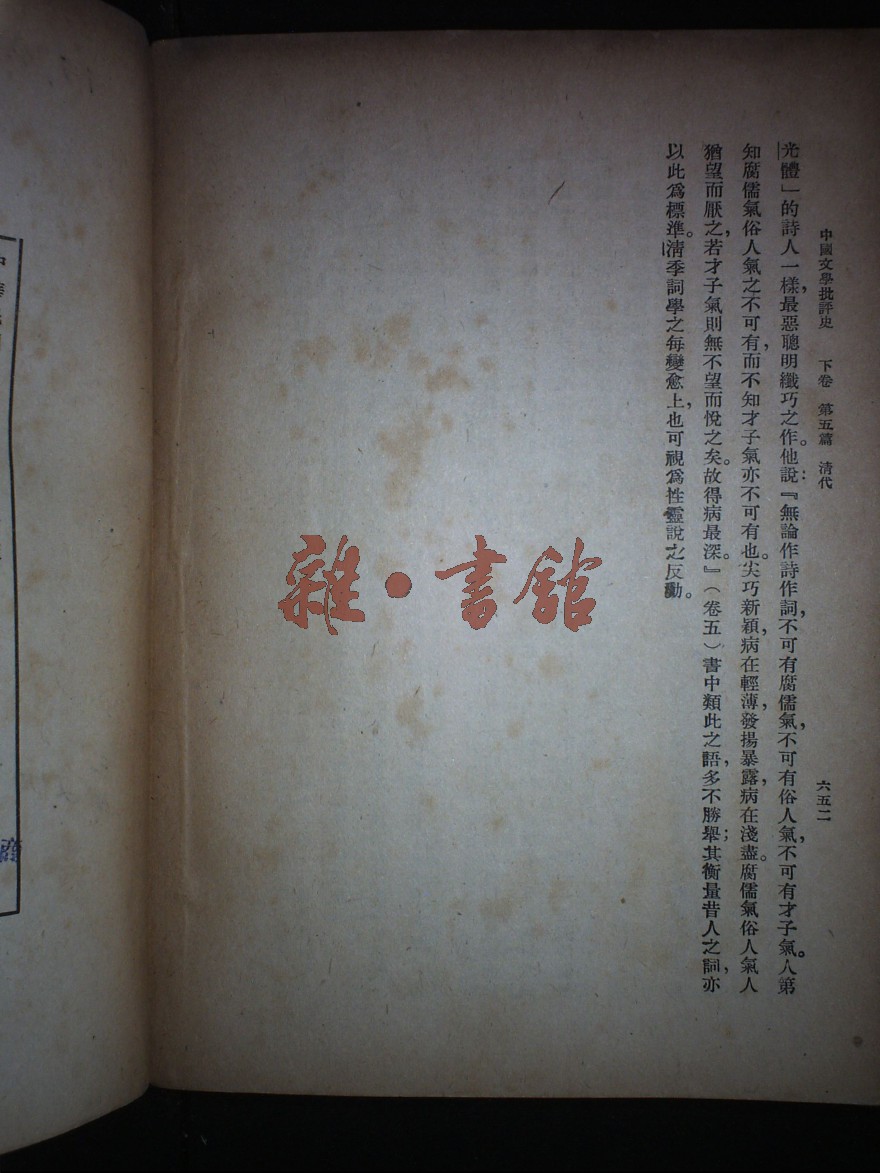 中國文學批評史　下卷　第五篇　清代　六五二
光體」的詩人一樣，最惡聰明纖巧之作。他說：『無論作詩作詞，不可有腐儒氣，不可有俗人氣，不可有才子氣。人第
知腐儒氣俗人氣之不可有，而不知才子氣亦不可有也。尖巧新穎，病在輕薄，發揚暴露，病在淺盡。腐儒氣俗人氣人
猶望而厭之，若才子氣則無不望而悅之矣。故得病最深。』（卷五）書中類此之語，多不勝舉；其衡量昔人之詞，亦
以此為標準。清季詞學之每變愈上，也可視為性靈說之反動。
雜·書館